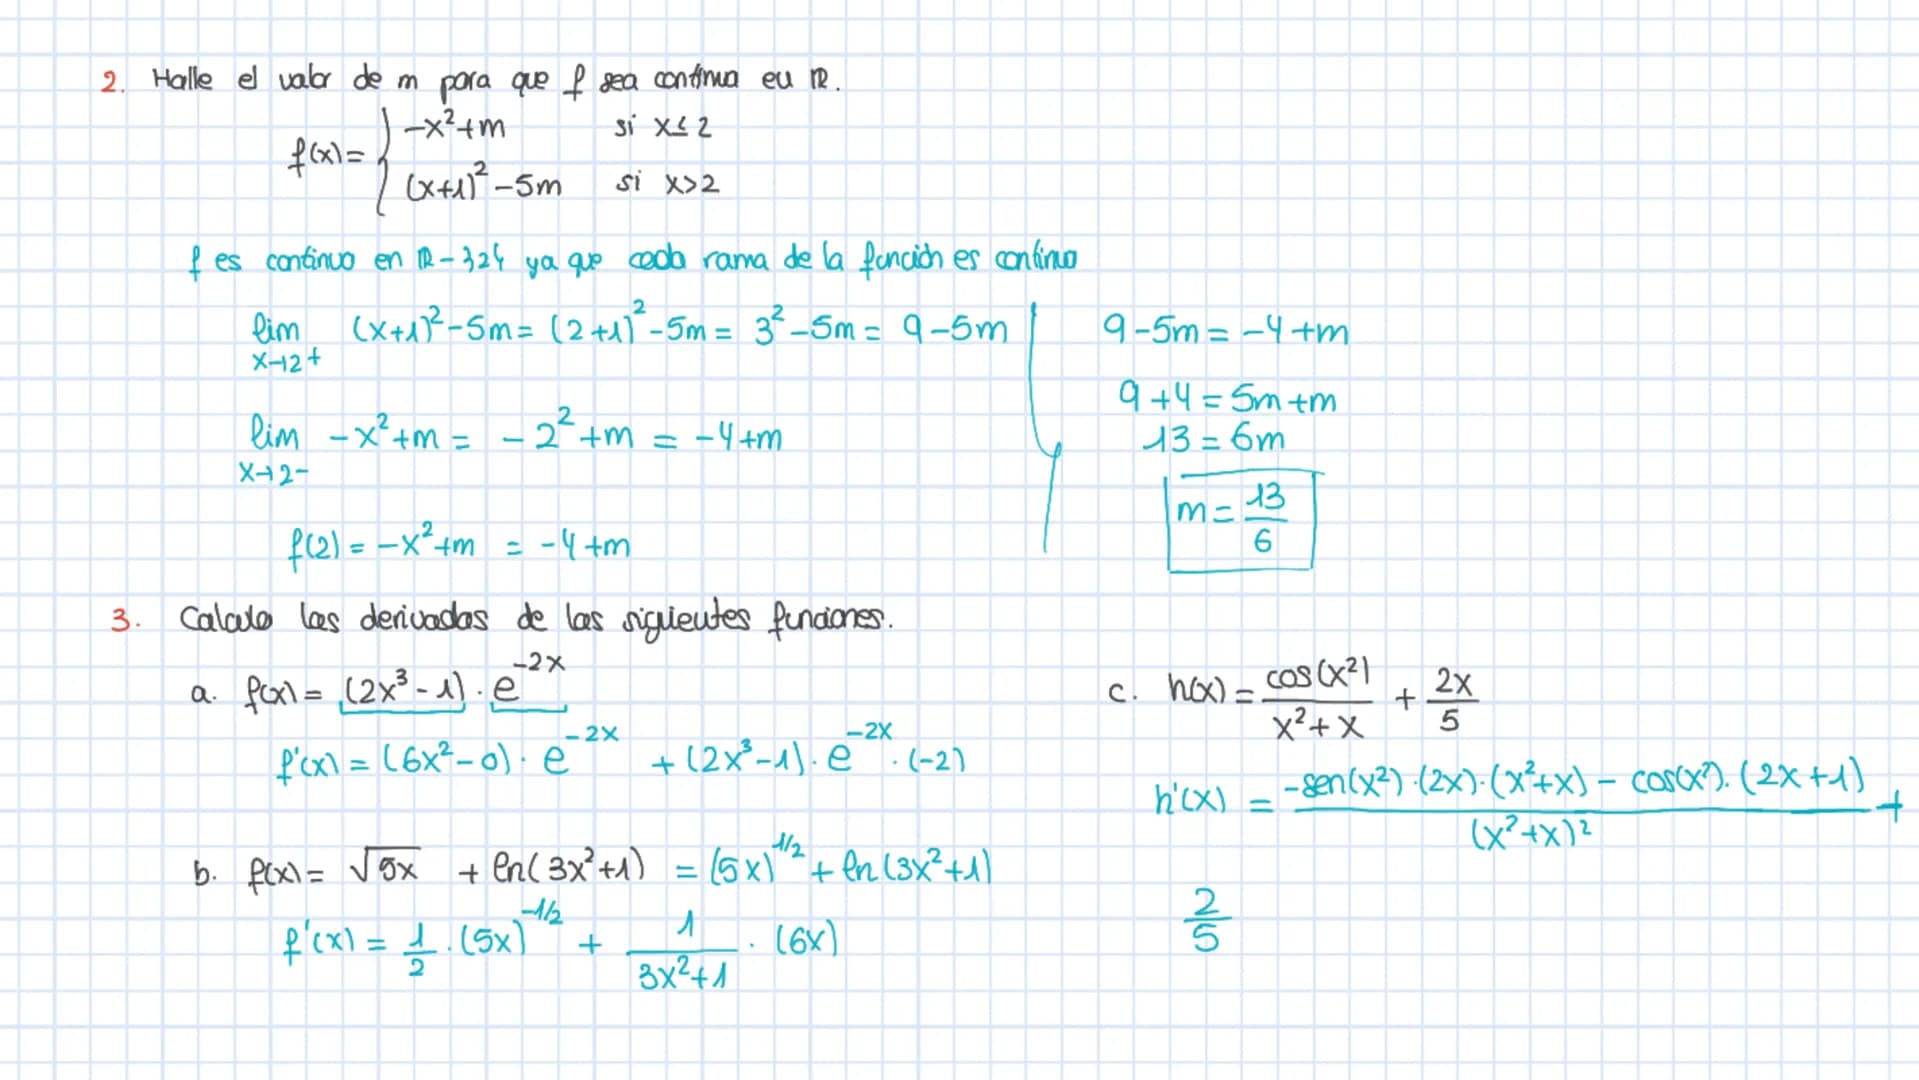 2. Halle el valor de m para que f sea continua en ℝ.
f(x) = { -x² + m si x ≤ 2
(x+1)² - 5m si x > 2
f es continua en ℝ - {2} ya que cada rama de la función es continua
lim x→2+ (x+1)² - 5m = (2+1)² - 5m = 3² - 5m = 9 - 5m
9 - 5m = -4 + m
9 + 4 = 5m + m
lim x→2- -x² + m = -2² + m = -4 + m
13 = 6m
m = 13/6
f(2) = -x² + m = -4 + m
3. Calcula las derivadas de las siguientes funciones.
a. f(x) = (2x³ - 1) · e^-2x
f'(x) = (6x² - 0) · e^-2x + (2x³ - 1) · e^-2x · (-2)
b. f(x) = √5x + ln(3x² + 1) = (5x)^1/2 + ln(3x² + 1)
f'(x) = 1/2 · (5x)^-1/2 + 1/(3x² + 1) · (6x)
c. h(x) = cos(x²)/(x² + x) + 2x/5
h'(x) = (-sen(x²) · (2x) · (x² + x) - cos(x²) · (2x + 1))/(x² + x)² +
2/5